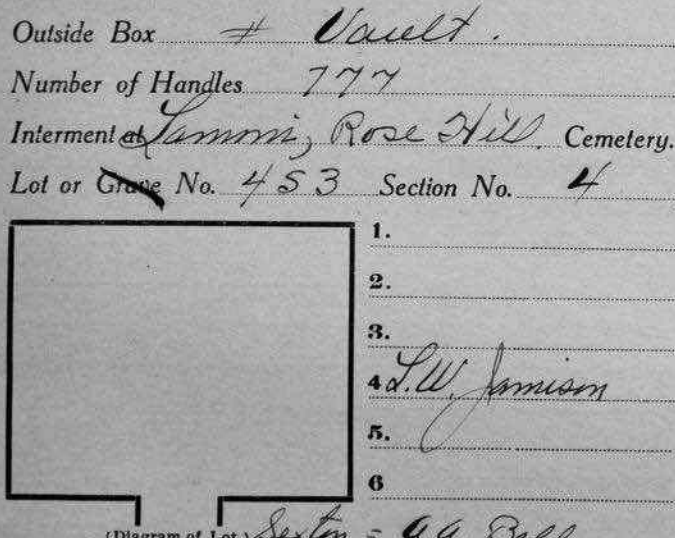 Outside Box # Vault.
Number of Handles 777
Interment at Rose Hill Cemetery.
Lot or Grave No. 453 Section No. 4
1.
2.
3.
4 L.W. Jamison
5.
6
(Diagram of Lot.) Sexton = Bell